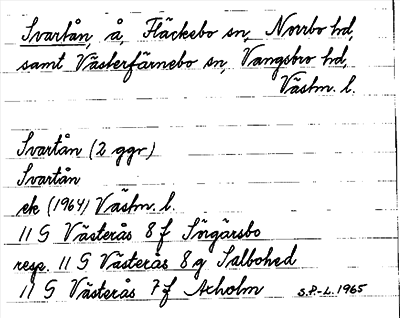 Svartån, å, Fläckebo sn, Norrbo hd,
samt Västerfärnebo sn, Vangsbro hd,
Västm. l.
Svartån (2 ggr)
Svartån
ek (1964) Västm. l.
11 G Västerås 8 f Sörgärsbo
resp. 11 G Västerås 8 g Salbohed
11 G Västerås 7 f Axholm
S.P-L. 1965